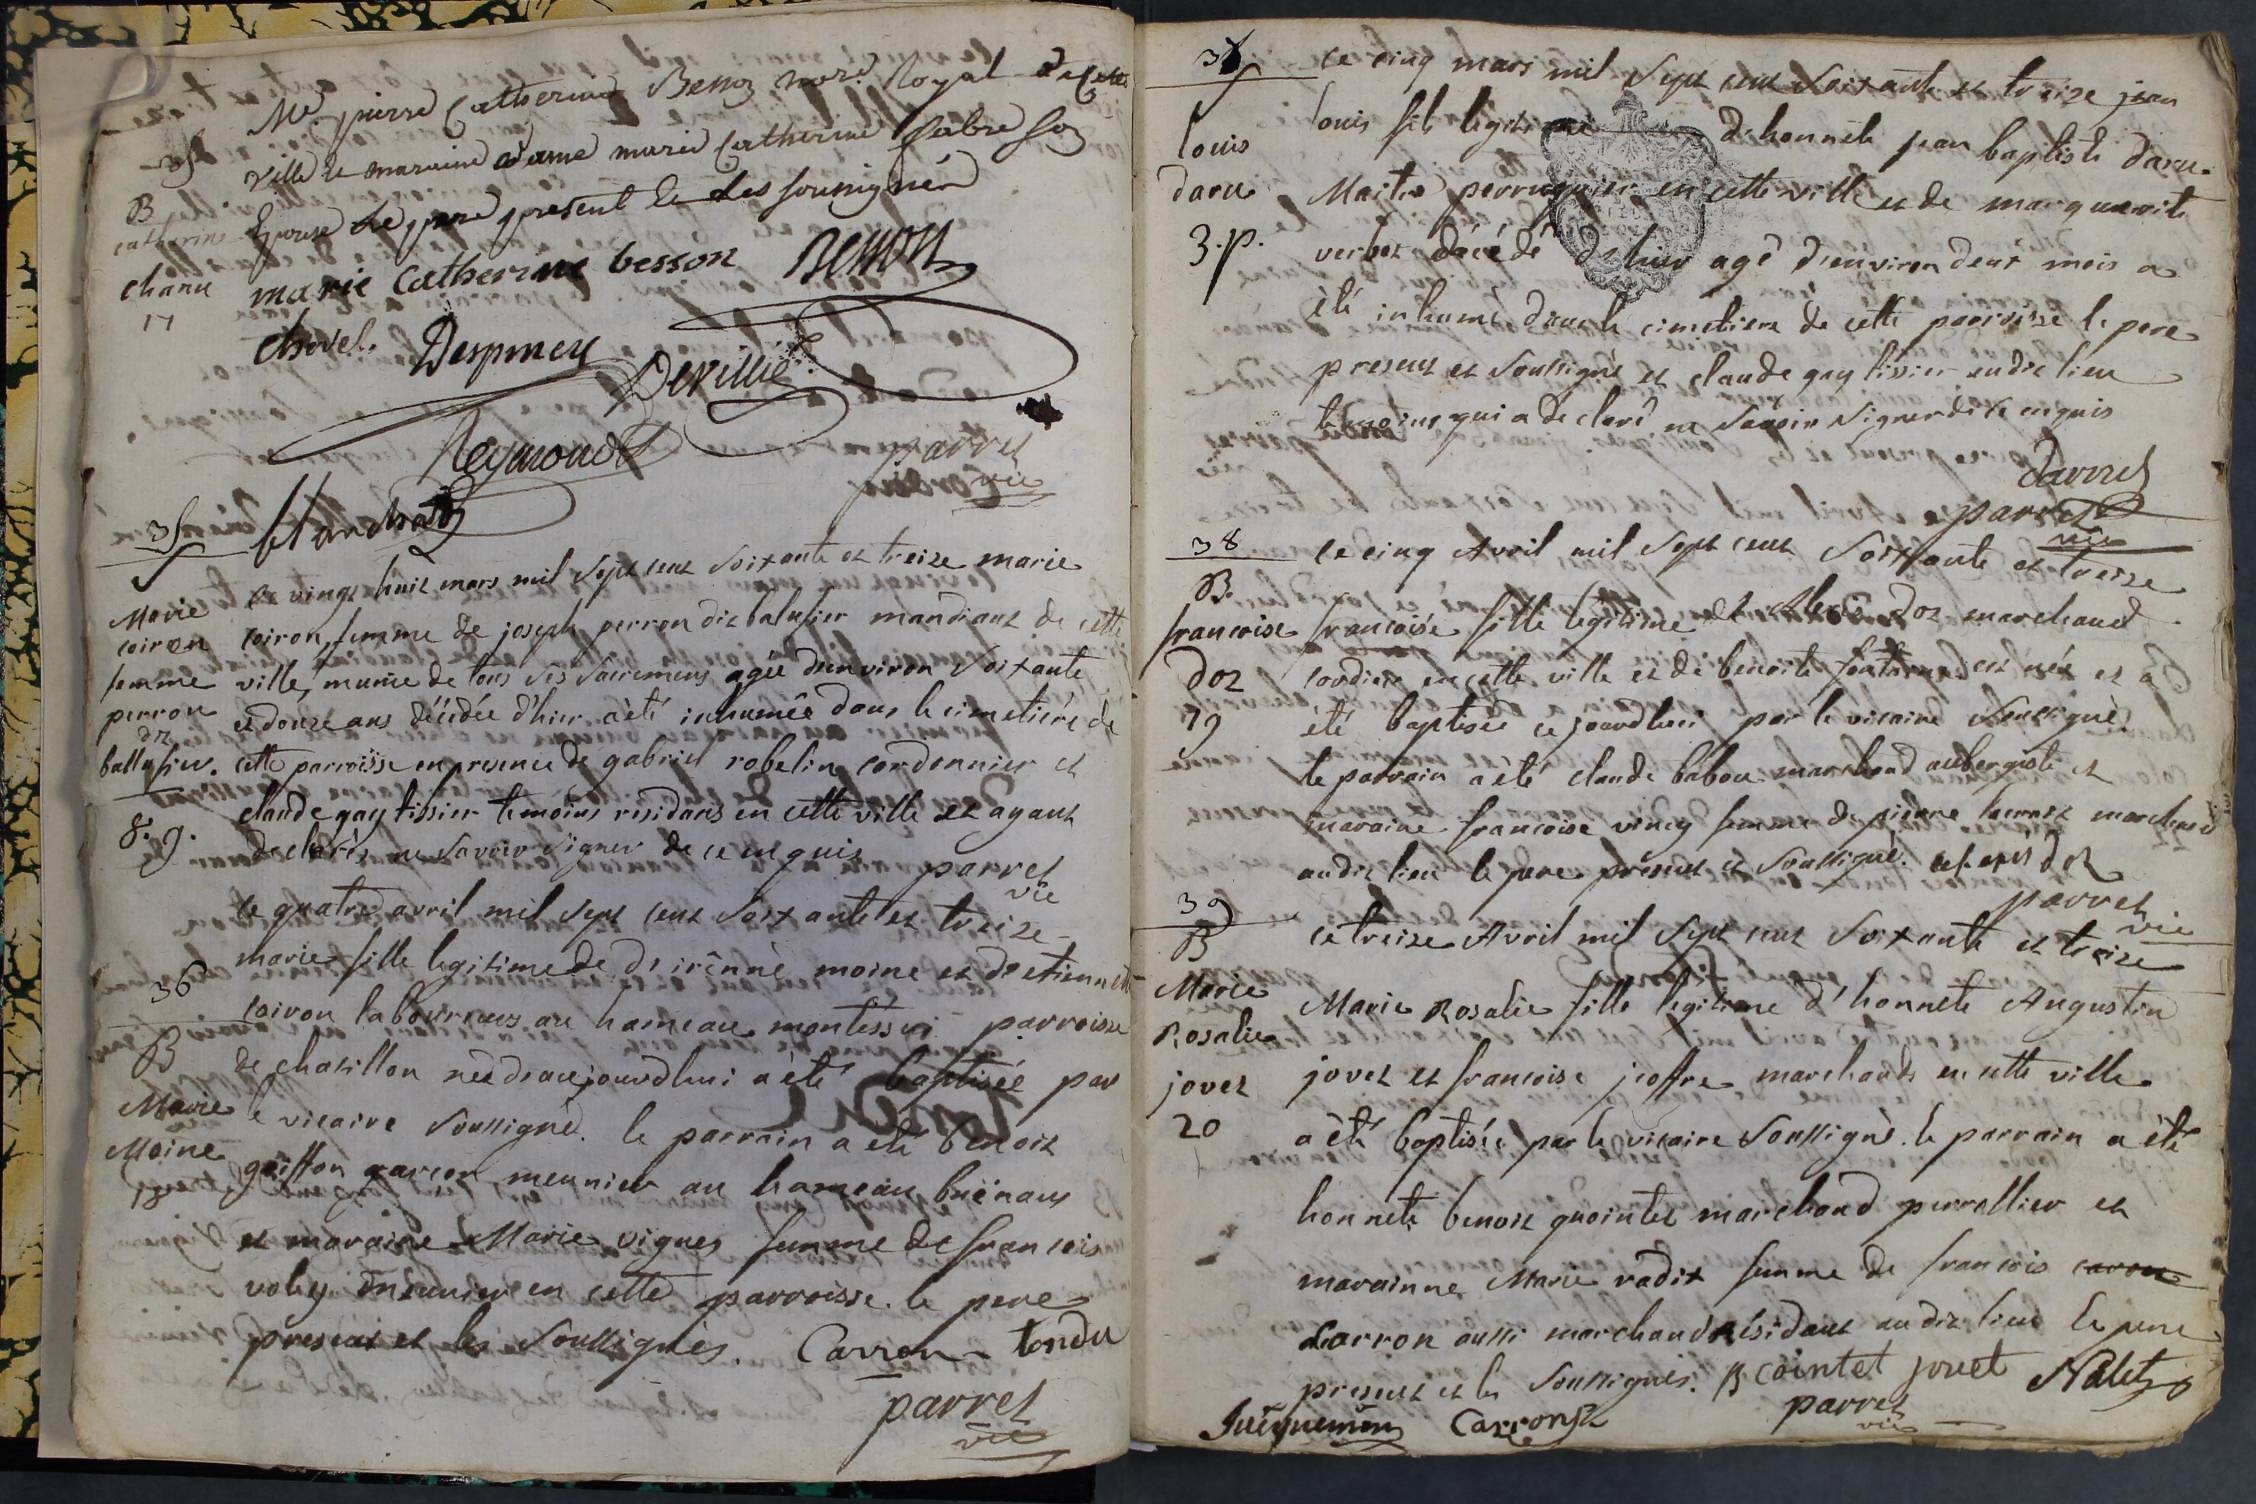 Me. pierre Catherin Besson Royal
ville et maraine dame marie Catherine fabre
Epouse de pere present les soussignés
B
catherine
chanu
17
marie Catherine besson Besson
chovel. Despiney
Devillie
Reymond
parret
vic
35
S
Blanchard
Marie
coiron
femme
perron
dit
ballufier.
8. g.
ce vingt huit mars mil sept cent soixante et treize marie
coiron, femme de joseph perron dit balufier mandiant de cette
ville, munie de tous ses sacremens agée d'environ soixante
et douze ans décédée d'hier a été inhumée dans le cimetière de
cette parroisse en presence de gabriel robelin cordonnier et
claude gay tissier temoins residans en cette ville et ayant
declarés ne savoir signer de ce enquis
parret
vic
ce quatre avril mil sept cent soixante et treize
marie fille legitime de d'irênné moine et d'etiennette
coiron laboureurs au hameau parroisse
de chatillon née d'aujourdhui a été baptisée par
le vicaire soussigné. le parrain a été benoit
goiffon garçon meunier au hameau buénans
et maraine Marie vignes femme de francois
voley meunier en cette parroisse. le pere
present et les soussignés. Carron tondu
parret
vic
36
B
Marie
Moine
18
37
S
louis
daru
3. p.
ce cinq mars mil sept cent soixante et treize jean
louis fils legitime d'honnête jean baptiste daru
Maitre perruquier en cette ville et de marguerite
décédé d'hier agé d'environ deux mois a
été inhumé dans le cimetiere de cette parroisse le pere
present et soussigné et claude gay tissier audit lieu
temoins qui a déclaré ne savoir signer de ce enquis
parret
vic
38
B.
francoise
doz
19
ce cinq Avril mil sept cent soixante et treize
francoise fille legitime d'Alexis doz marchand
cordier en cette ville et de benoite fontaine est née et a
été baptisée ce jourdhui par le vicaire soussigné.
le parrain a été claude babou marchand aubergiste et
maraine francoise vincy femme de pierre marchand
audit lieu le pere présent et soussigné. alexis doz
parret
vic
39
B
Marie
Rosalie
jovet
20
ce treize Avril mil sept cent soixante et treize
Marie Rosalie fille legitime d'honnete Augustin
jovet et francoise jeoffre marchands en cette ville
a été baptisée par le vicaire soussigné. le parrain a été
honnete benoit quointet marchand et
marainne Marie radix femme de francois carron
Carron aussi marchand résidant audit lieu le pere
present et les soussignés. B cointet jovet
Carron parret
vic